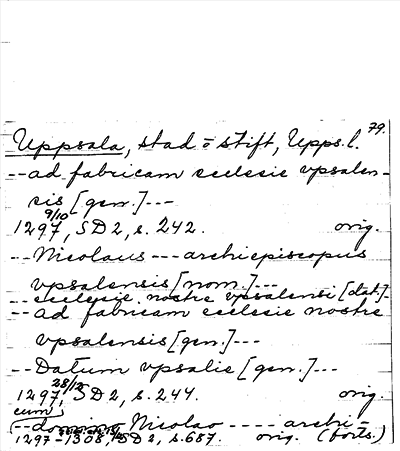 79.
Uppsala, stad o stift, Upps. l.
-- ad fabricam ecclesie vpsalen-
sis [gen.] ---
1297 9/10, SD 2, s. 242. orig.
-- Nicolaus --- archiepiscopus
vpsalensis [nom.] ---
-- ecclesie nostre vpsalensi [dat.] -
-- ad fabricam ecclesie nostre
vpsalensis [gen.] ---
-- Datum vpsalie [gen.] ---
1297 28/12, SD 2, s. 244. orig.
cum
-- domino Nicolao ---- archi-
1297-1308, SD 2, s. 687. orig. (forts.)